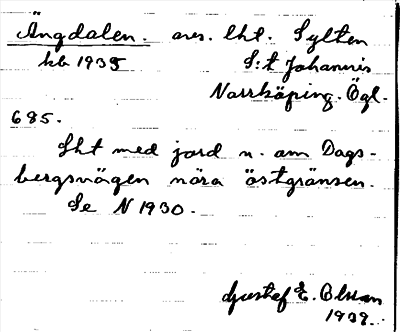 Ängdalen. avs. lht. Sylten
kb 1935 S:t Johannis
Norrköping. Ögl.
685.
Lht med jord n. om Dags-
bergsvägen nära östgränsen.
Se N 1930.
Gustaf E. Olsson
1939.